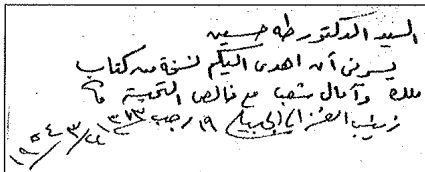 السيد الدكتور طه حسين
يسرنى أن اهدى اليكم نسخة من كتاب
ملك وآمال شعب مع خالص التحية
زينب الغزالي الجبيلي ١٩ رجب ١٣٧٣